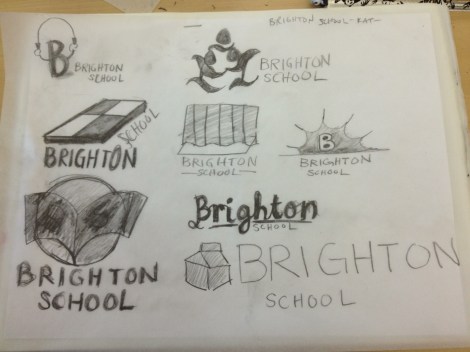 BRIGHTON SCHOOL - KAT -
B
BRIGHTON
SCHOOL
BRIGHTON
SCHOOL
SCHOOL
BRIGHTON
BRIGHTON
SCHOOL
B
BRIGHTON
SCHOOL
BRIGHTON
SCHOOL
Brighton
SCHOOL
BRIGHTON
SCHOOL